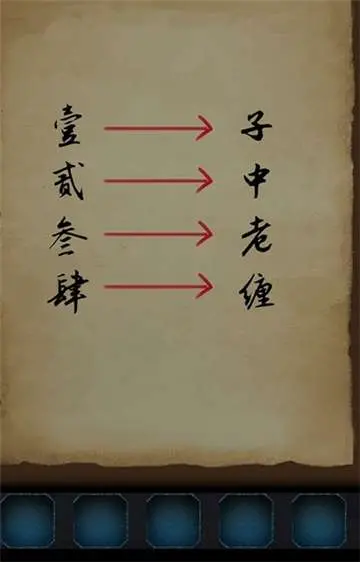 壹 → 子
贰 → 中
叁 → 老
肆 → 缠